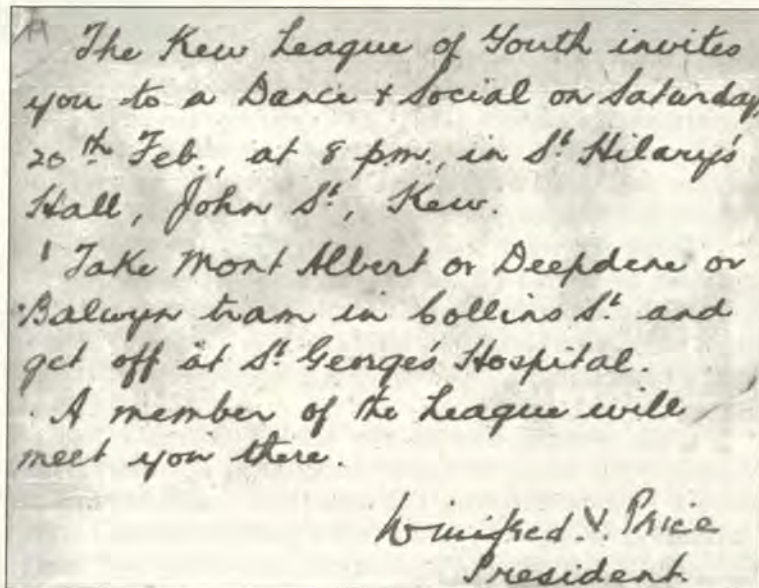 The Kew League of Youth invites
you to a Dance + Social on Saturday,
20th Feb., at 8 pm., in St Hilary's
Hall, John St, Kew.
Take Mont Albert or Deepdene or
Balwyn tram in Collins St and
get off at St George's Hospital.
A member of the League will
meet you there.
Winifred. V. Price
President